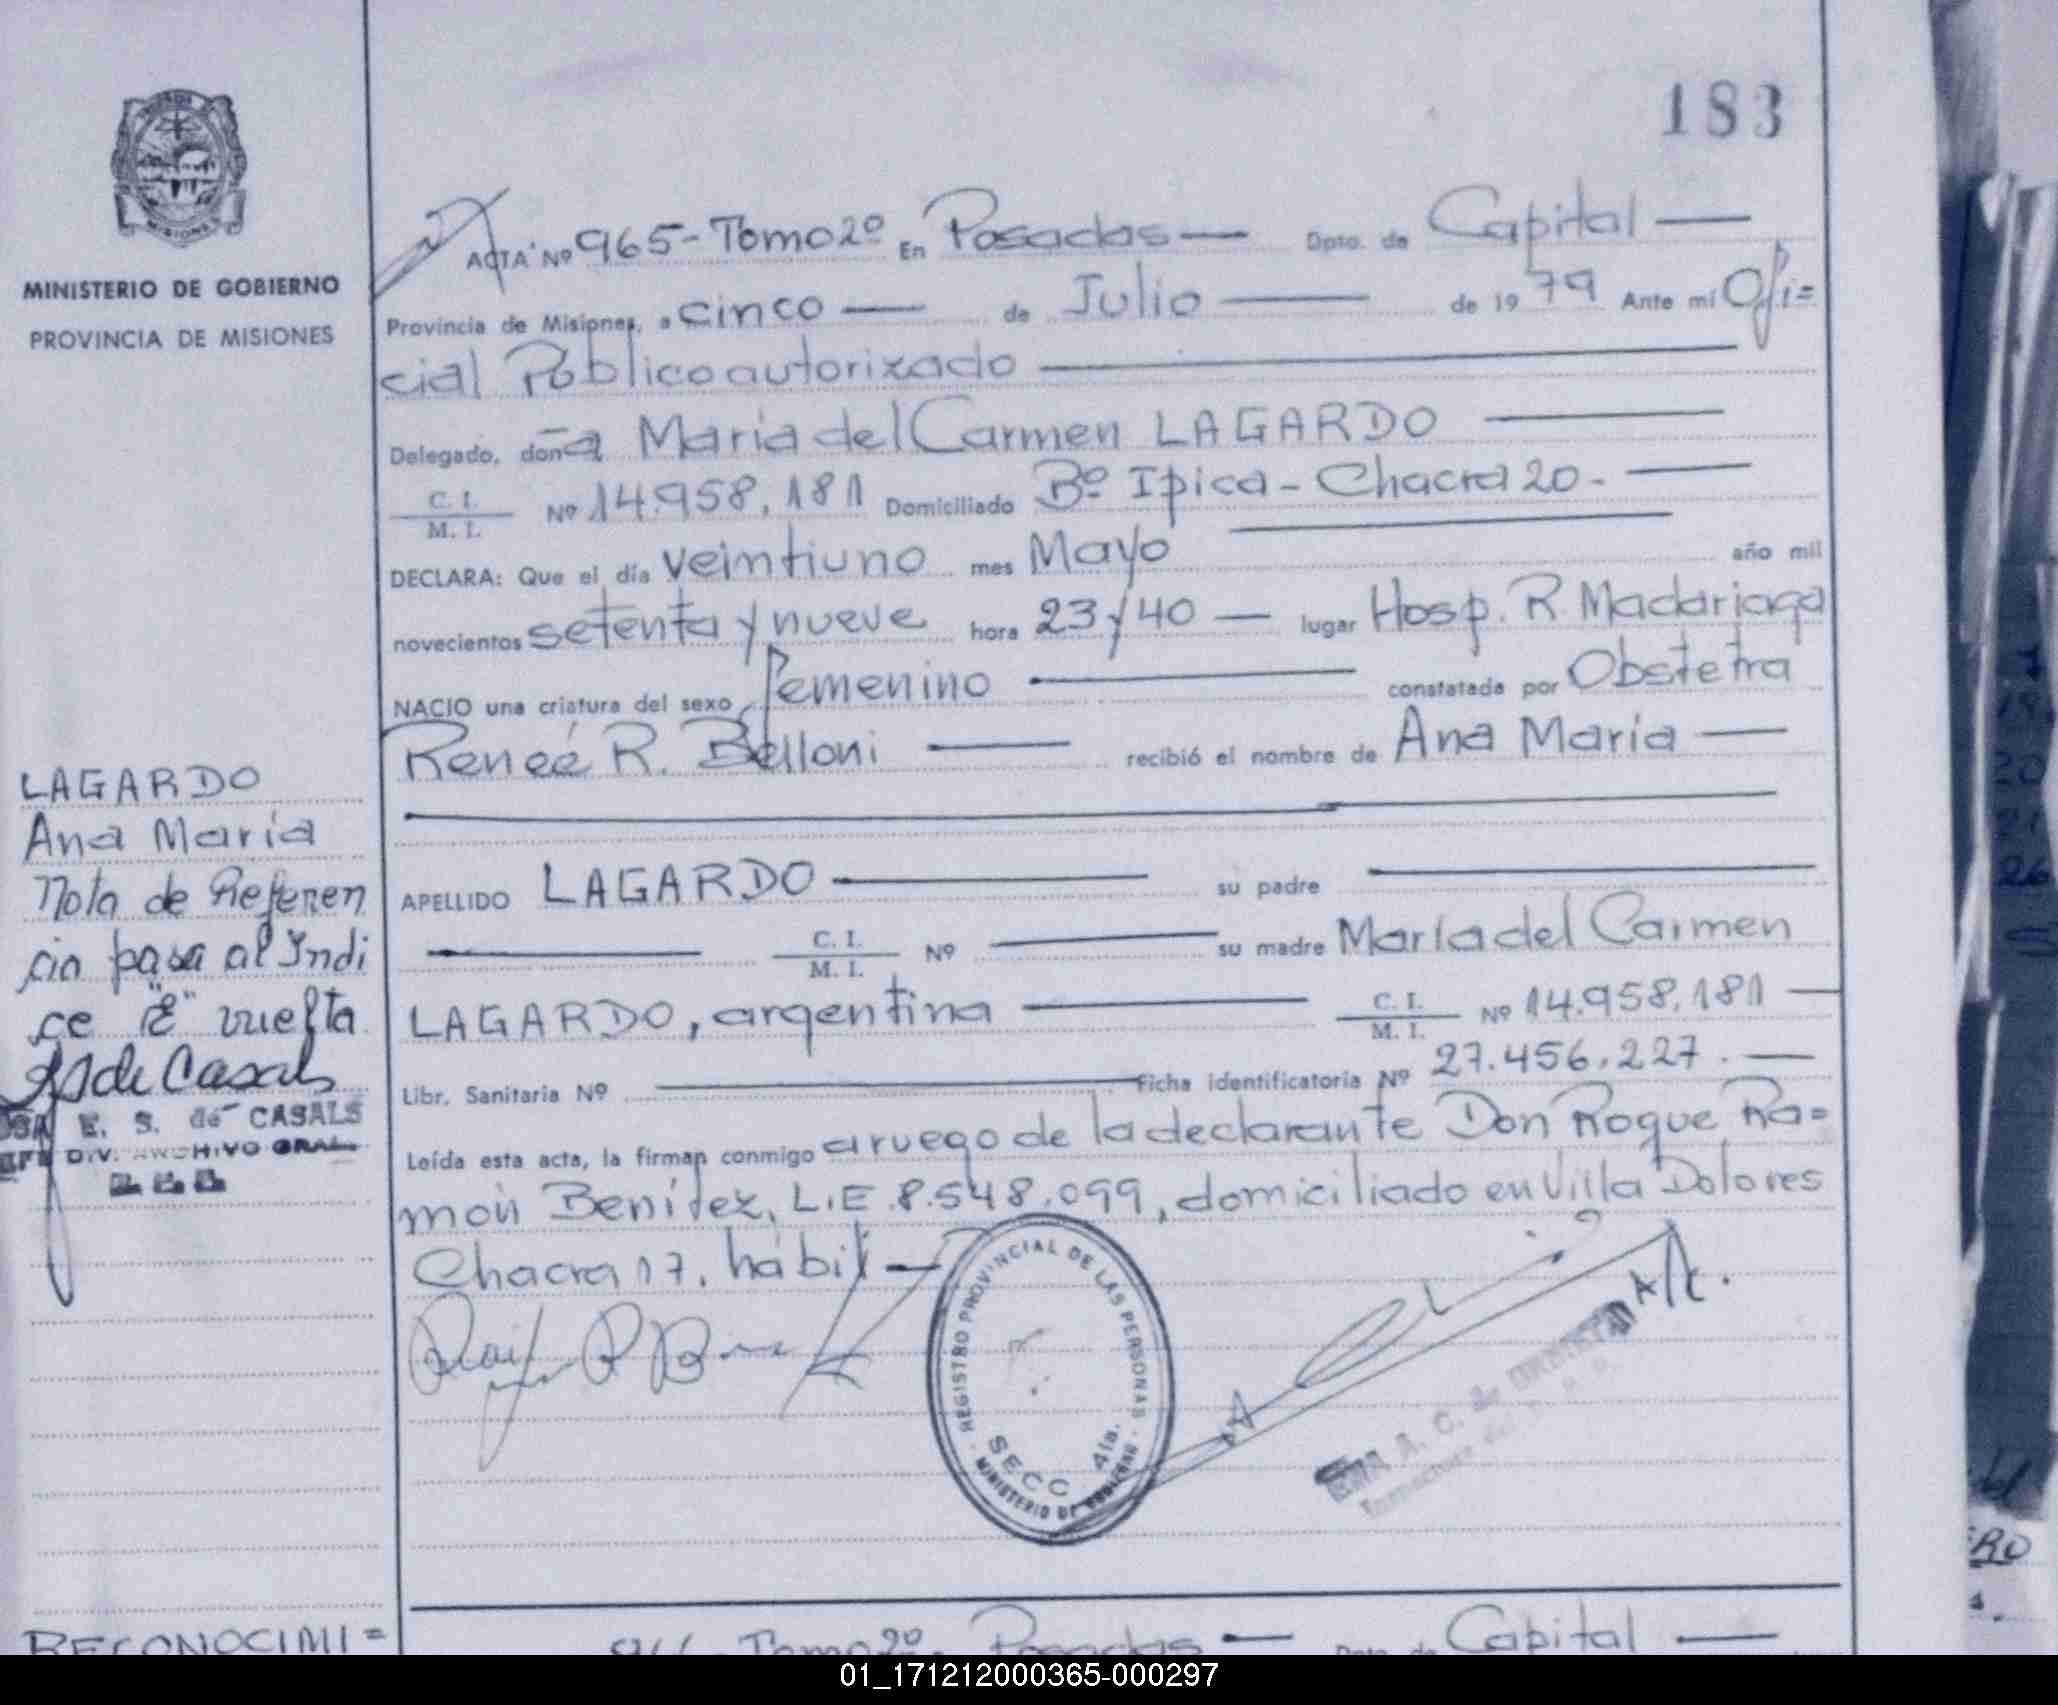 183
MINISTERIO DE GOBIERNO
PROVINCIA DE MISIONES
ACTA Nº 965-Tomo 2º En Posadas — Dpto. de Capital —
Provincia de Misiones, a cinco — de Julio — de 1979 Ante mí Ofi=
cial Público autorizado —
Delegado, doña María del Carmen LAGARDO —
C. I.
M. I. Nº 14.958.181 Domiciliado Bº Ipica - Chacra 20. —
DECLARA: Que el día veintiuno mes Mayo — año mil
novecientos setenta y nueve hora 23y40 — lugar Hosp. R. Madariaga
NACIO una criatura del sexo femenino — constatada por Obstetra
Reneé R. Belloni — recibió el nombre de Ana María —
APELLIDO LAGARDO — su padre —
— C. I.
M. I. Nº — su madre María del Carmen
LAGARDO, argentina — C. I.
M. I. Nº 14.958.181 —
Libr. Sanitaria Nº — Ficha identificatoria Nº 27.456.227. —
Leída esta acta, la firman conmigo a ruego de la declarante Don Roque Ra=
món Benítez, L.E 8.548.099, domiciliado en Villa Dolores
Chacra 17, hábil —
LAGARDO
Ana María
Nota de Referen
cia pasa al Indi
ce "E" vuelta
de Casals
E. S. de CASALS
DIV. ARCHIVO GRAL
REGISTRO PROVINCIAL DE LAS PERSONAS
SECC 4ta.
MINISTERIO DE GOBIERNO
A/c.
A. C. de
RECONOCIMI=
966 - Tomo 2º. Posadas — Dpto. de Capital —
01_171212000365-000297